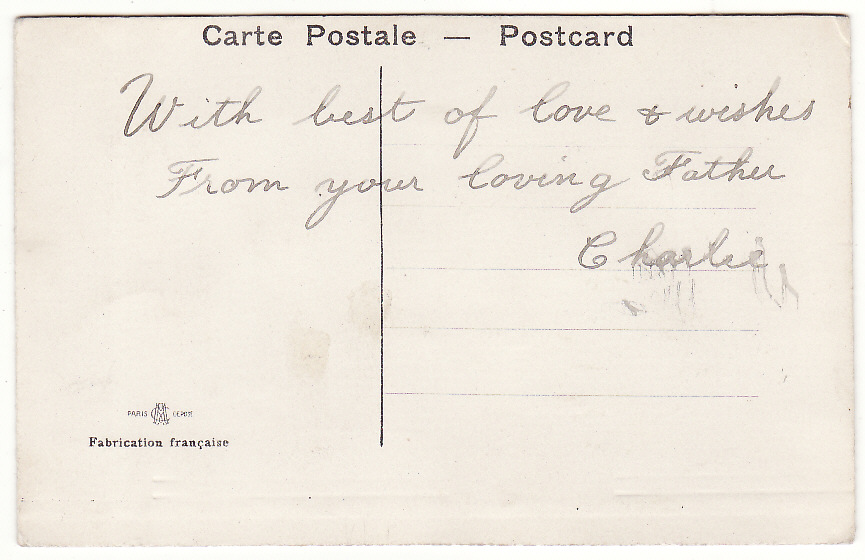 Carte Postale — Postcard
With best of love & wishes
From your loving Father
Charlie
PARIS DEPOSÉ
Fabrication française